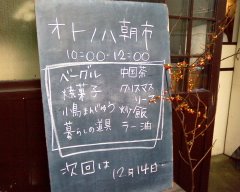 オトノハ朝市
10:00-12:00
ベーグル
焼菓子
小鳥まんじゅう
暮らしの道具
中国茶
クリスマス
リース
炒飯
ラー油
次回は 12月14日